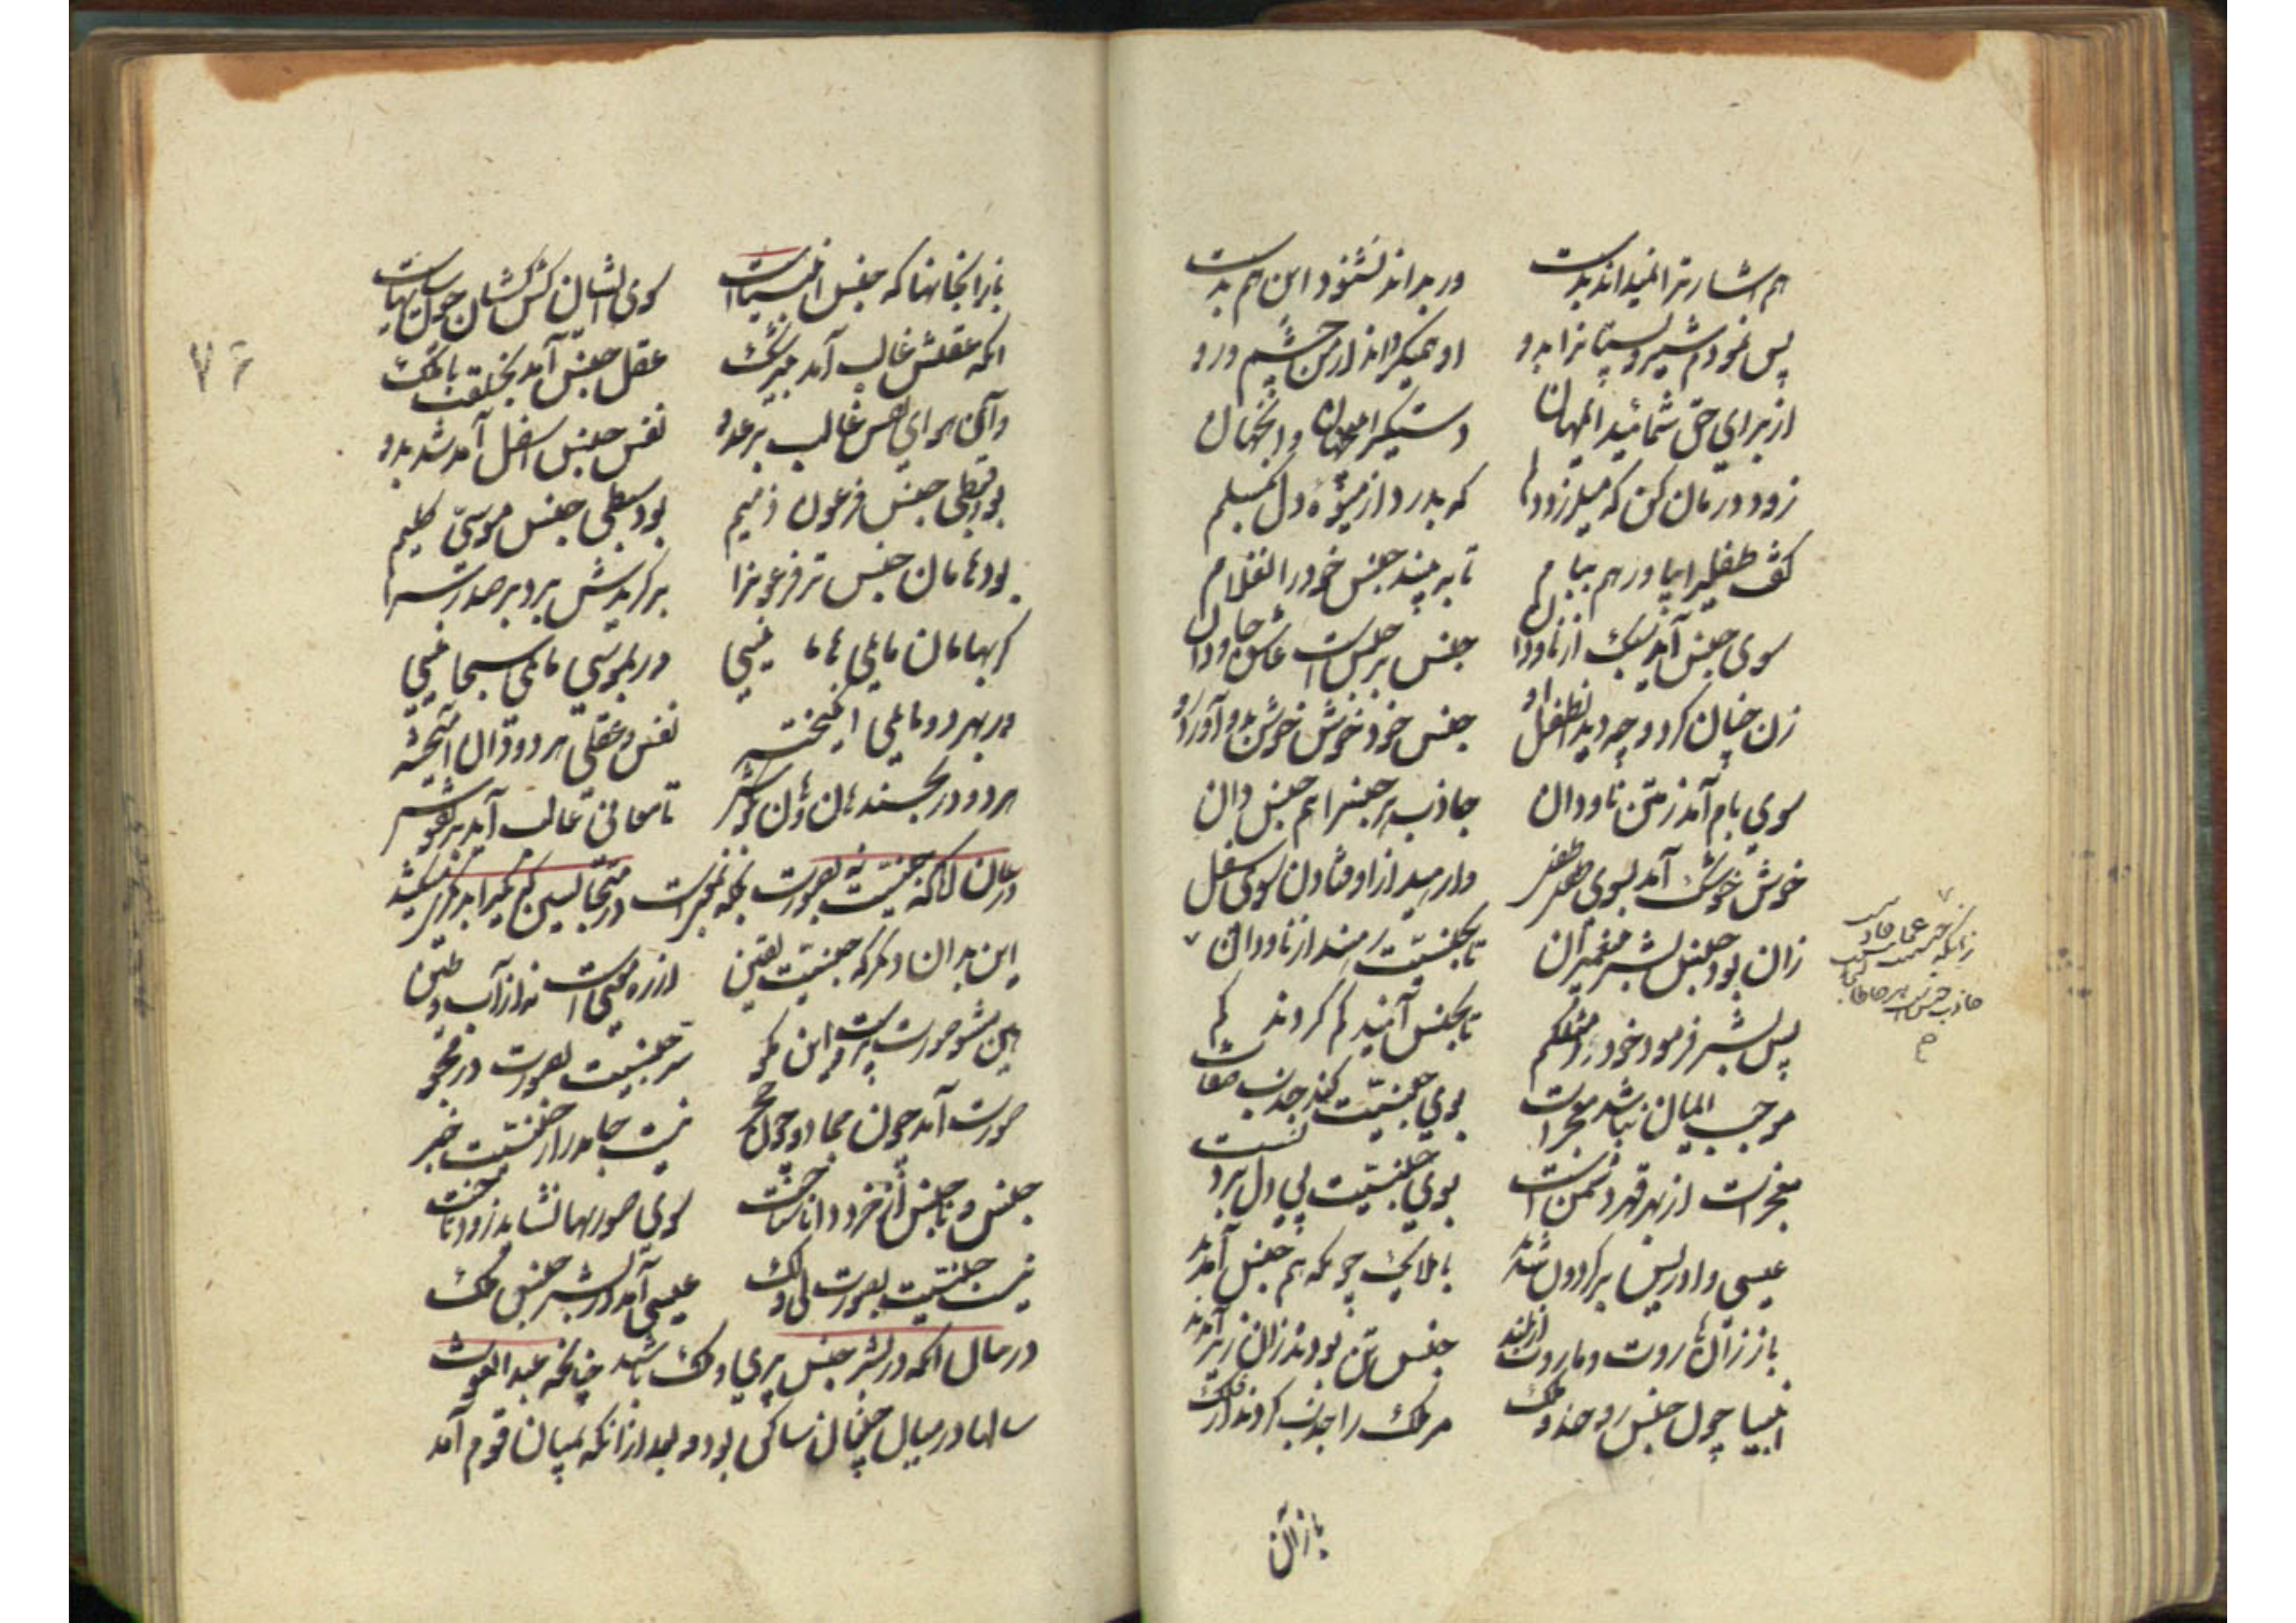 هم اشارت را نمیداند بدست	ور بداند نشنود این هم بدست
پس نمودم شیر و پستانرا بدو	او همیکرداند از من چشم و رو
از برای حق شمائید ایمهان	دستکیر اینجهان و انجهان
زود درمان کن که میلرزد دلم	که بدرد از میوۀ دل بکسلم
کفت طفلیرا بیاور هم ببام	تا به بیند جنس خود را آن غلام
سوی جنس آید سبک از ناودان	جنس بر جنس است عاشق جاودان
زن چنان کرد و چو دید آن طفل او	جنس خود خوش خوش بدو آورد رو
سوی بام آمد ز متن ناودان	جاذب هر جنسرا هم جنس دان
	وارهید از اوفتادن سوی سفل
زان بود جنس بشر پیغمبران	تا بجنسیت رهند از ناودان
پس بشر فرمود خود را مثلکم	تا بجنس آئید کم کردند کم
زانکه جنسیت عجایب جاذبیست
جاذب جنس است هر جا طالبیست
موجب ایمان نباشد معجزات	بوی جنسیت کند جذب صفات
معجزات از بهر قهر دشمن است	بوی جنسیت پی دل بردنست
عیسی و ادریس بر کردون شدند	با ملایک چونکه هم جنس آمدند
باز آن هاروت و ماروت از بلند	جنس تن بودند زان زیر آمدند
انبیا چون جنس روحند و ملک	مر ملک را جذب کردند از فلک
باز آن
۷۶
باز آنجانها که جنس انبیاست	سوی ایشان کش کشان چون سایهاست
انکه عقلش غالب آمد بیزشک	عقل جنس آمد بخلقت با ملک
وآن هوای نفس غالب بر عدو	نفس جنس اسفل آمد شد بدو
بود قبطی جنس فرعون ذمیم	بود سبطی جنس موسی کلیم
بود هامان جنس تر فرعونرا	برکزیدش برد بر صدر سرا
کر بهامان مایلی هامانیی	ور بموسی مایلی سبحانیی
ور بهر دو مایلی انکیخته	نفس و عقلی هر دو وان آمیخته
هر دو در جنکند هان و هان بکوش	تا معانی غالب آید بر نقوش
در بیان آنکه جنسیت نه بصورت
این بدان دیکر که جنسیت یقین	از ره معنیست نه از آب و طین
هین مشو صورت پرست و این مکو	سر جنسیت بصورت در مجو
صورت آمد چون جماد و چون حجر	نیست جامد را ز جنسیت خبر
جنس و ناجنس از خرد دانی شناخت	سوی صورتها نشاید زود تاخت
نیست جنسیت بصورت لی و لک	عیسی آمد در بشر جنس ملک
در بیان انکه در بشر جنس پری و ملک باشد چنانکه عبد الغوث
سالها در میان جنیان ساکن بود و بعد از آنکه بمیان قوم آمد